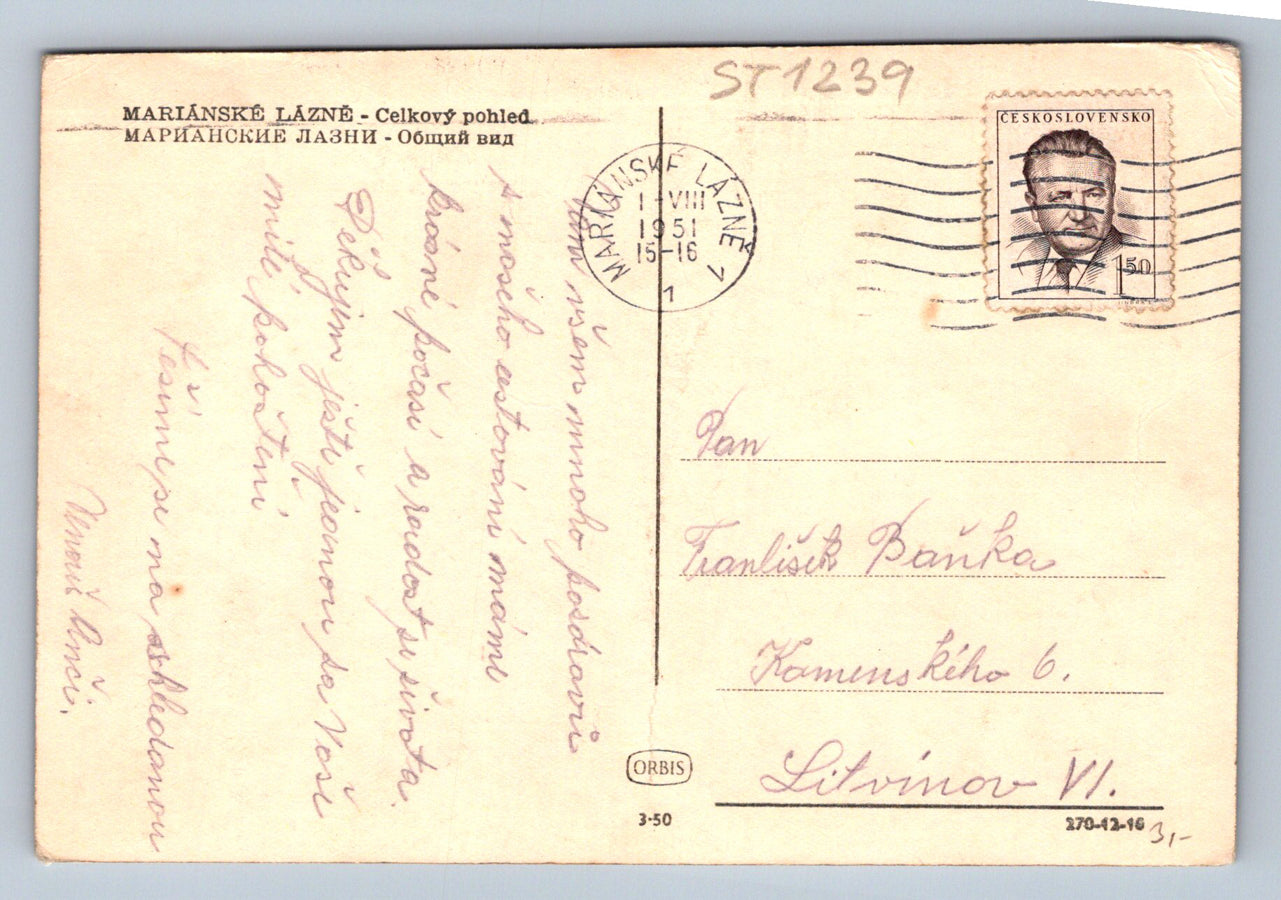 ST1239
MARIÁNSKÉ LÁZNĚ - Celkový pohled
МАРИАНСКИЕ ЛАЗНИ - Общий вид
ČESKOSLOVENSKO
1.50
MARIÁNSKÉ LÁZNĚ 1
1-VIII
1951
15-16
1
všem mnoho pozdravů
z našeho cestování máme
krásné počasí a radost ze života.
Děkujem ještě jednou za Vaše
milé pohoštění
Těšíme se na shledanou
Pan
František Baňka
Kamenského 6.
Litvínov VI.
ORBIS
3-50
270-12-16
3,-